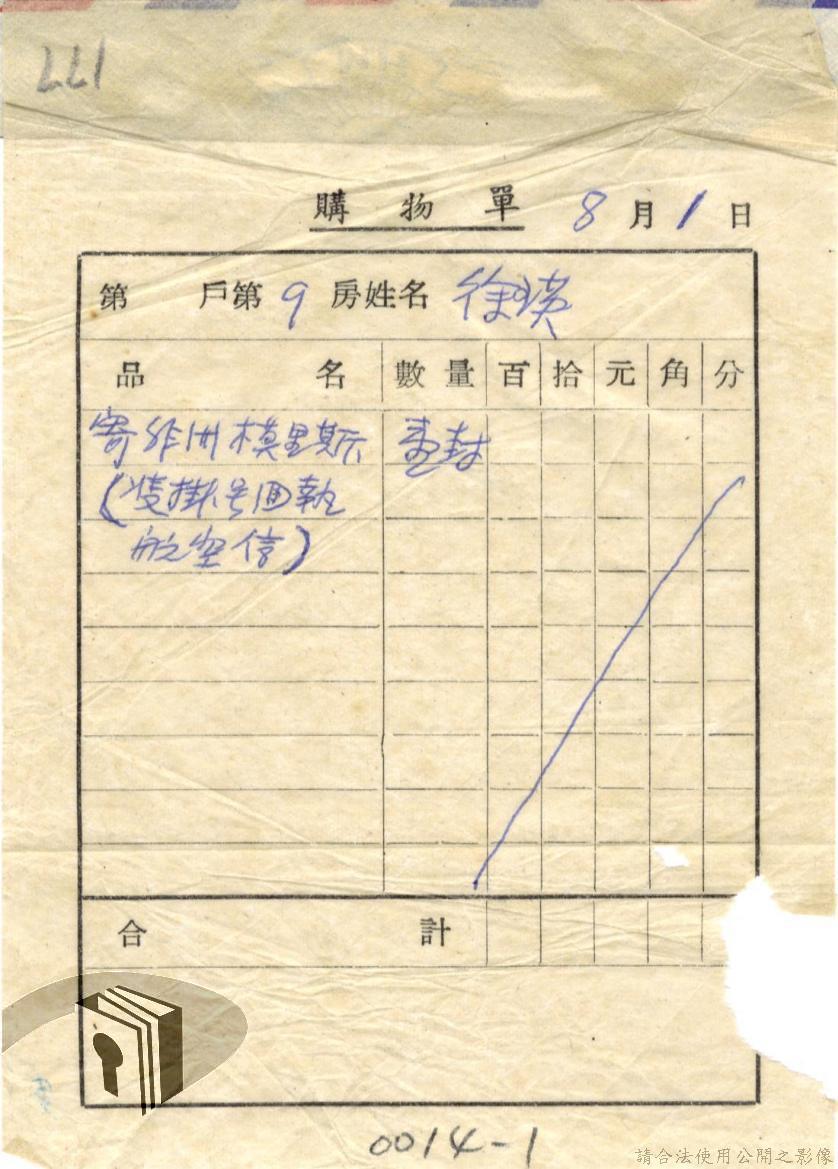 177
購物單 8月1日
第 戶第9房姓名 徐瑛
品名 數量 百 拾 元 角 分
寄非洲模里斯 壹封
(雙掛号回執
航空信)
合計
0014-1
請合法使用公開之影像